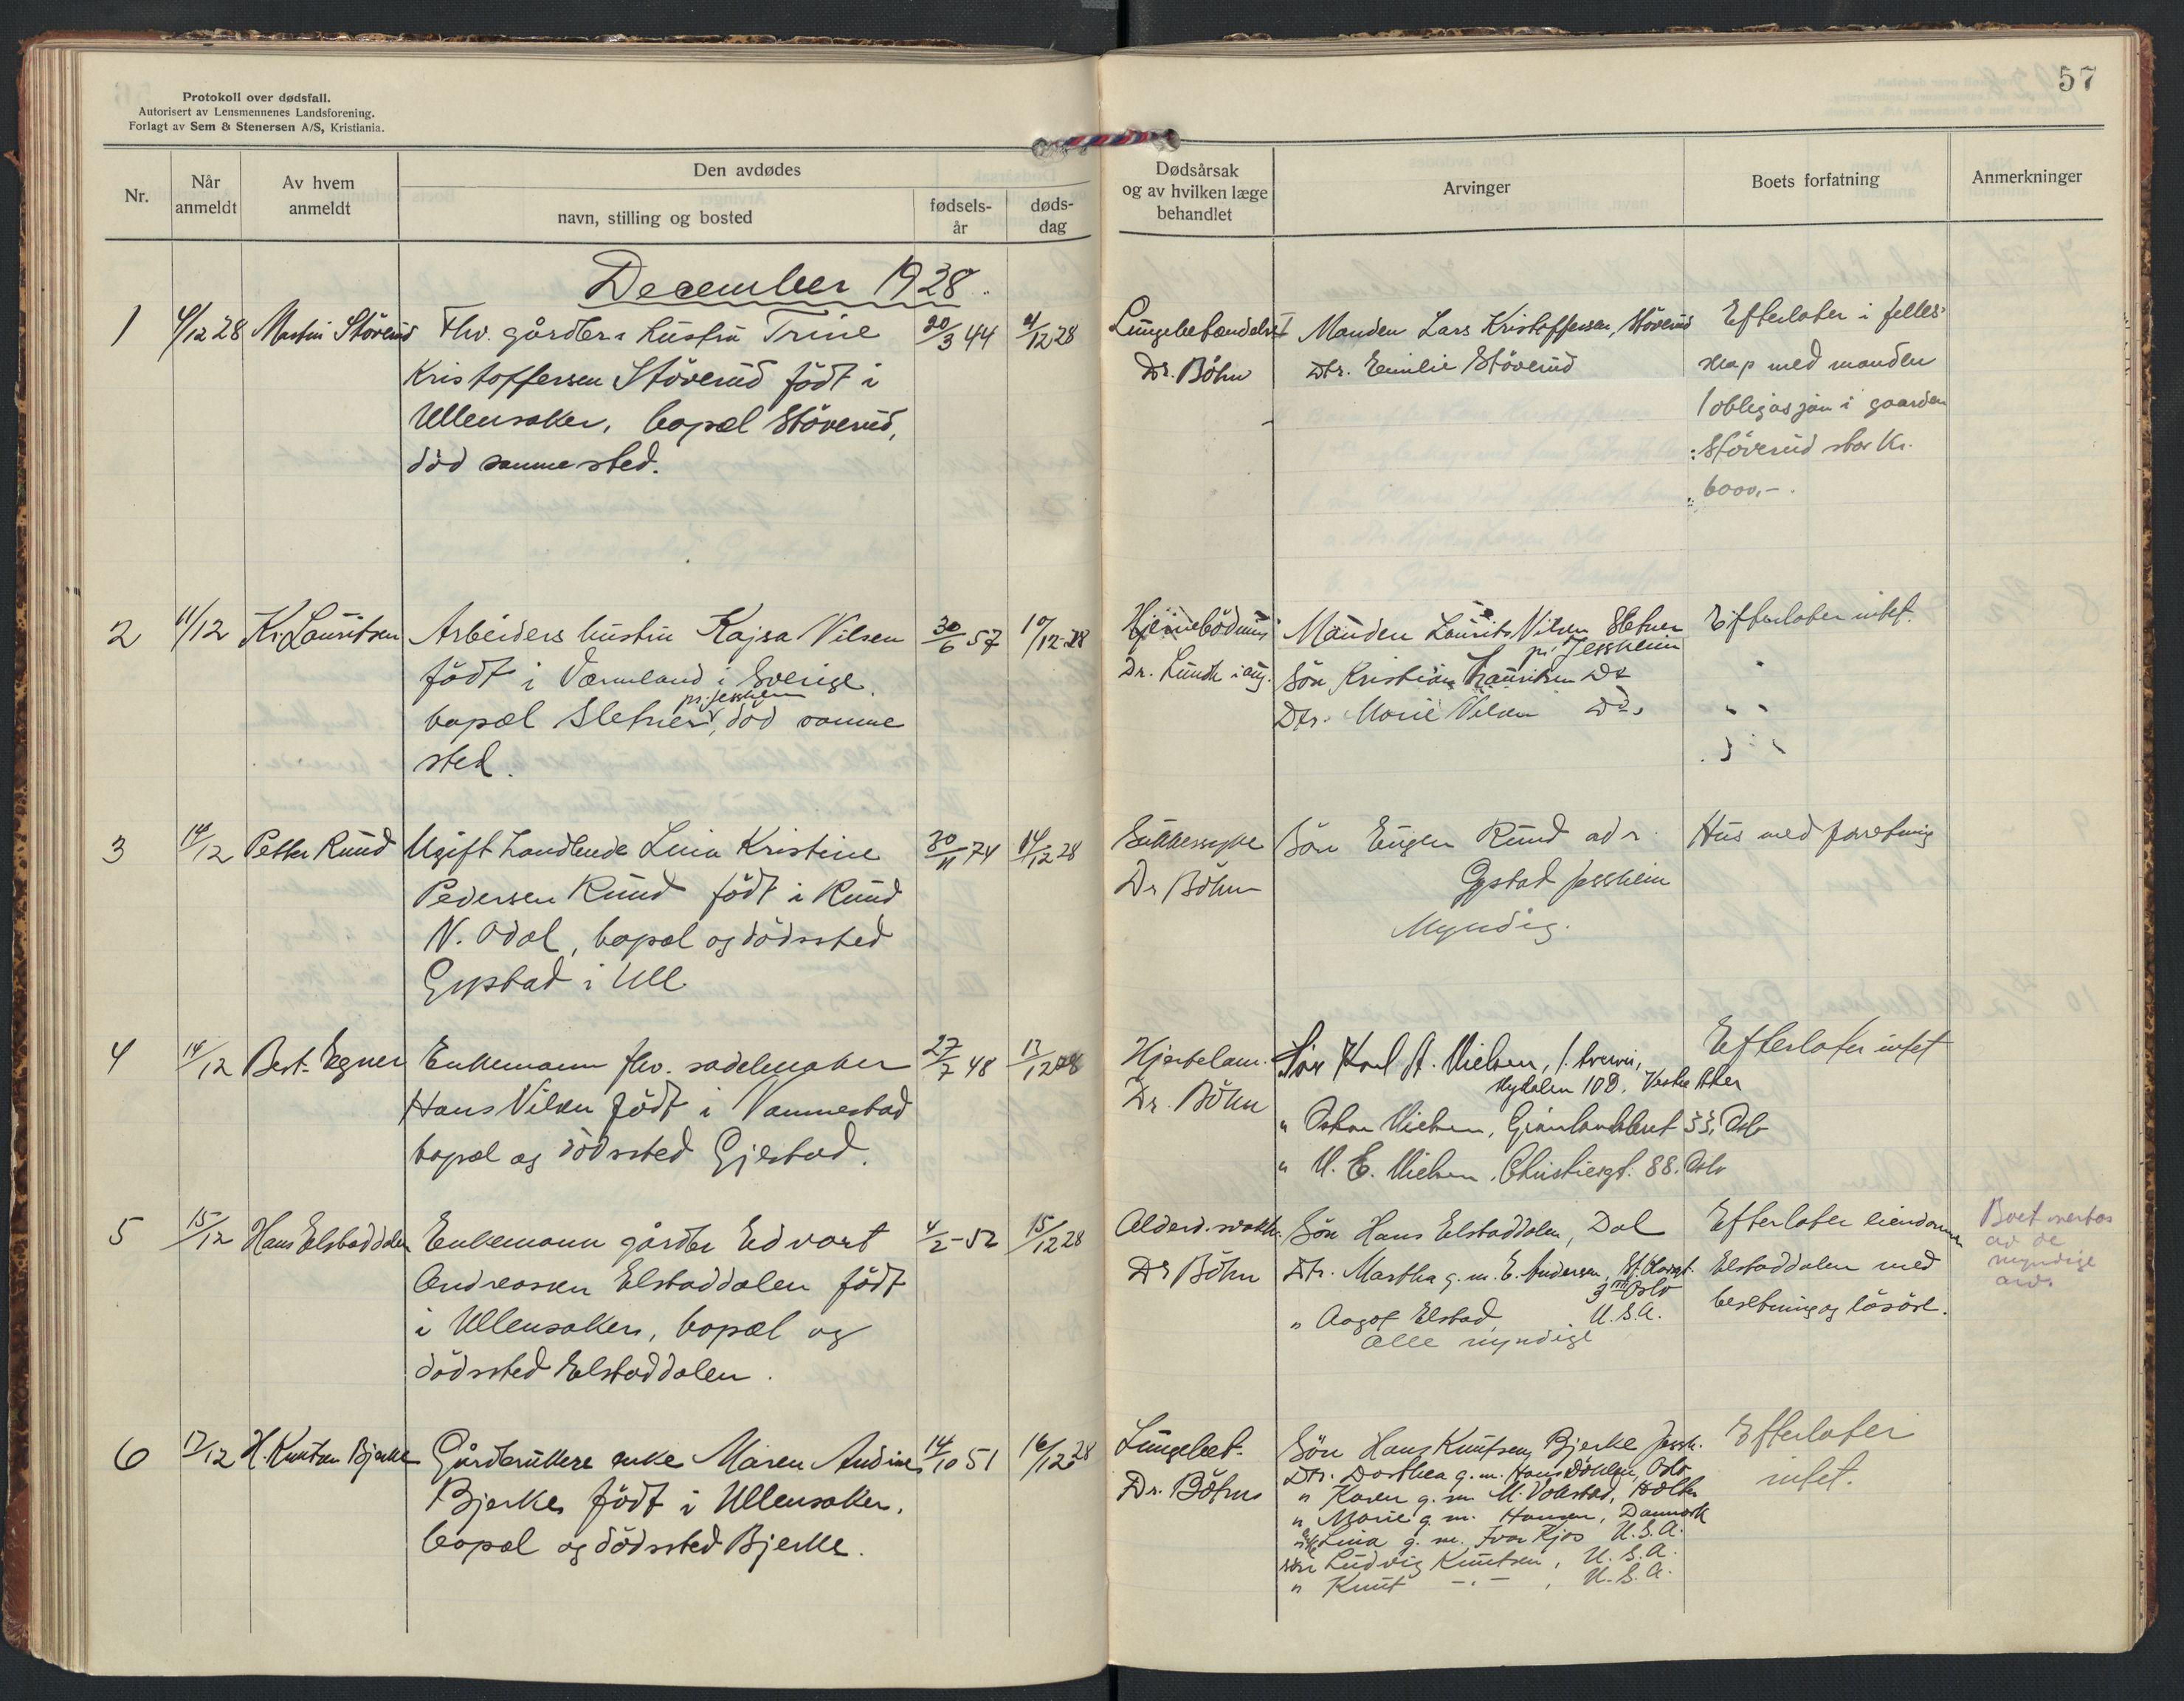 57
Protokoll over dødsfall.
Autorisert av Lensmennenes Landsforening.
Forlagt av Sem & Stenersen A/S, Kristiania.
Nr.
Når anmeldt
Av hvem anmeldt
Den avdødes
navn, stilling og bosted
fødsels-år
døds-dag
Dødsårsak og av hvilken læge behandlet
Arvinger
Boets forfatning
Anmerkninger
December 1928.
1 4/12 28 Martin Störerud Fhv. gårdbr. hustru Trine 20/3 44 4/12 28
Kristoffersen Störerud födt i
Ullensaker, bopæl Störerud,
död sammested.
Lungebetændelse
Dr. Böhn
Manden Lars Kristoffersen, Störerud
Dtr. Emilie Störerud
Efterlater i felles-
skap med manden
1 obligasjon i gaarden
Störerud stor Kr.
6000,-.
2 11/12 Kr. Lauritsen Arbeiders hustru Kajsa Nilsen 30/6 57 10/12-28
födt i Værmland i Sverige
pr. Jessheim
bopæl Sletner, död samme
sted.
Hjerneblödning
Dr. Lundh i aug.
Manden Laurits Nilsen Sletner
pr. Jessheim
Sön Kristian Lauritsen Do
Dtr. Marie Nilsen Do
Efterlater intet.
3 14/12 Petter Ruud Ugift handlende Lina Kristine 30/11 74 14/12 28
Pedersen Ruud födt i Ruud
N. Odal, bopæl og dödssted
Gystad i Ull.
Sukkersyke
Dr Böhn
Sön Eugen Ruud adr.
Gystad Jessheim
Myndig.
Hus med forretning
4 14/12 Best. Egner Enkemann fhv. sadelmaker 27/7 48 13/12 28
Hans Nilsen födt i Vannestad
bopæl og dödssted Gjestad.
Hjertelam.
Dr. Böhn
Sön Karl A. Nielsen,
Nydalen 10B. Vestre Aker
" Oskar Nielsen, Grönlandsleret 33, Oslo
" N. E. Nielsen, Christiesgt. 88. Oslo
Efterlater intet
5 15/12 Hans Elstaddalen Enkemann gårdbr Edvart 4/2-52 15/12 28
Andreassen Elstaddalen födt
i Ullensaker, bopæl og
dödssted Elstaddalen.
Alderd.svakh.
Dr Böhn
Sön Hans Elstaddalen, Dal
Dtr. Martha g.m. E. Andersen,
Oslo
" Aagot Elstad, U.S.A.
Alle myndige
Efterlater eiendommen
Elstaddalen med
besetning og lösöre.
Boet overtas
av de
myndige
arv.
6 17/12 H. Knutsen Bjerke Gårdbrukere enke Maren Andrine 14/10 51 16/12 28
Bjerke, födt i Ullensaker,
bopæl og dödssted Bjerke.
Lungebet.
Dr. Böhn
Sön Hans Knutsen, Bjerke Jessh.
Dtr. Dorthea g.m. Hans Döhlen, Oslo
" Karen g.m. M. Volstad, Holter
" Marie g.m. Hansen, Danmark
" Lina g.m. Ivar Kjos U.S.A.
Sön Ludvig Knutsen, U.S.A.
" Knut -.- , U.S.A.
Efterlater
intet.